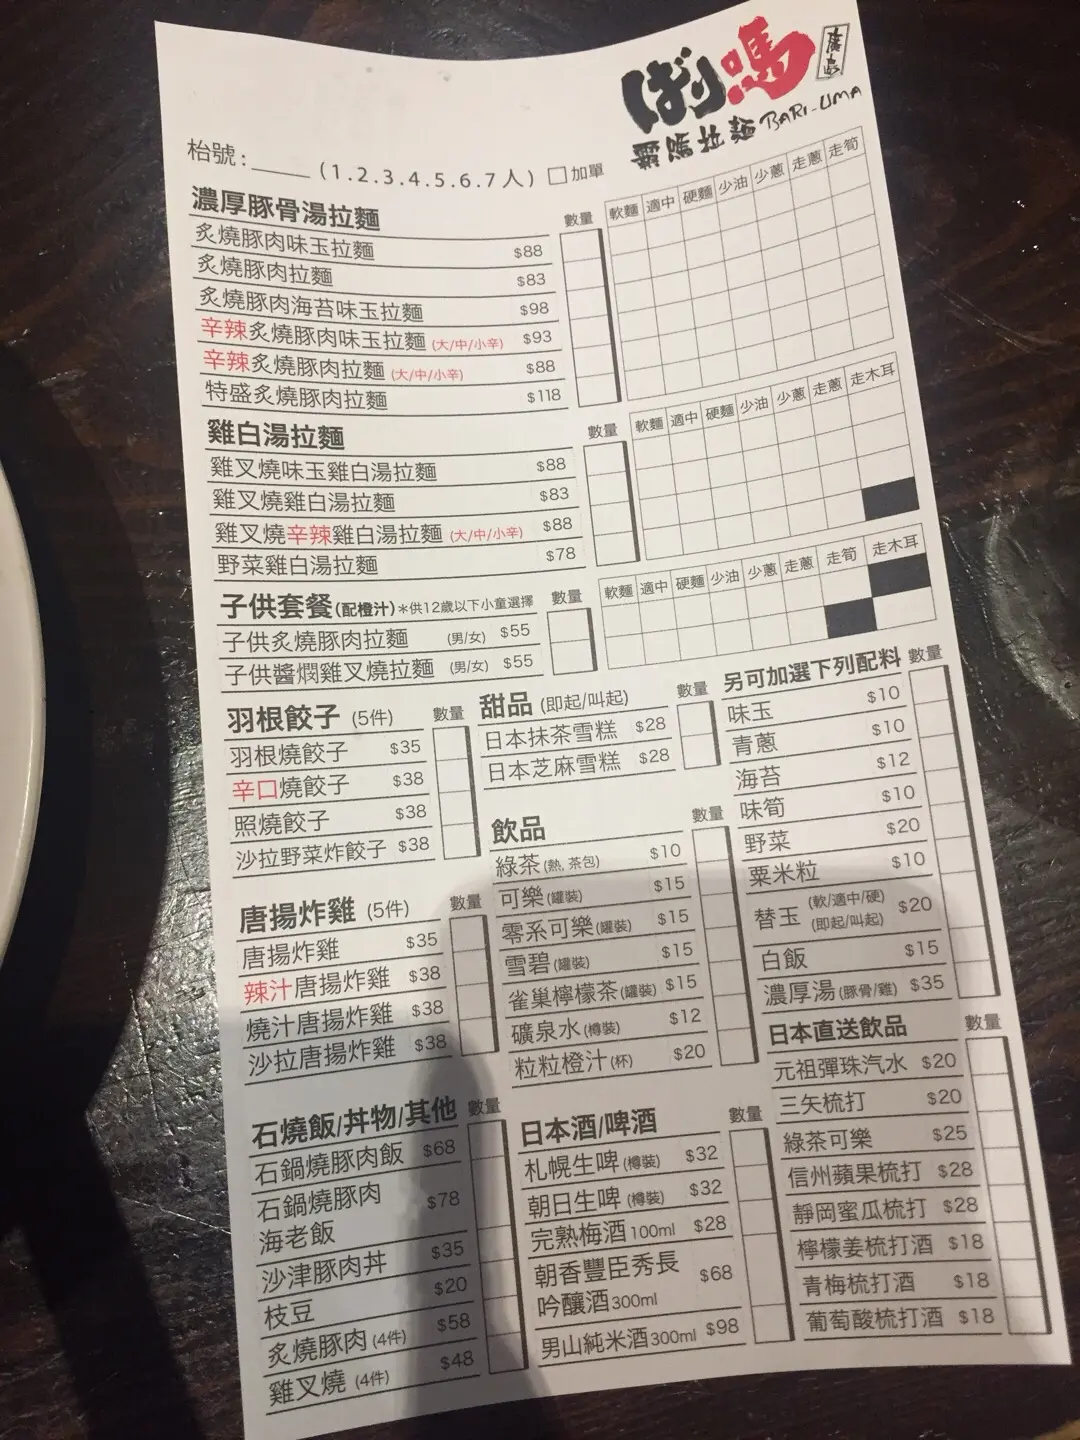 ばり嗎
廣島
霸嗎拉麵 BARI-UMA
枱號：_____ (1.2.3.4.5.6.7人) □加單
濃厚豚骨湯拉麵 數量 軟麵 適中 硬麵 少油 少蔥 走蔥 走筍
炙燒豚肉味玉拉麵 $88
炙燒豚肉拉麵 $83
炙燒豚肉海苔味玉拉麵 $98
辛辣炙燒豚肉味玉拉麵 (大/中/小辛) $93
辛辣炙燒豚肉拉麵 (大/中/小辛) $88
特盛炙燒豚肉拉麵 $118
雞白湯拉麵 數量 軟麵 適中 硬麵 少油 少蔥 走蔥 走木耳
雞叉燒味玉雞白湯拉麵 $88
雞叉燒雞白湯拉麵 $83
雞叉燒辛辣雞白湯拉麵 (大/中/小辛) $88
野菜雞白湯拉麵 $78
子供套餐(配橙汁)*供12歲以下小童選擇 數量 軟麵 適中 硬麵 少油 少蔥 走蔥 走筍 走木耳
子供炙燒豚肉拉麵 (男/女) $55
子供醬燜雞叉燒拉麵 (男/女) $55
羽根餃子 (5件) 數量
羽根燒餃子 $35
辛口燒餃子 $38
照燒餃子 $38
沙拉野菜炸餃子 $38
唐揚炸雞 (5件) 數量
唐揚炸雞 $35
辣汁唐揚炸雞 $38
燒汁唐揚炸雞 $38
沙拉唐揚炸雞 $38
石燒飯/丼物/其他 數量
石鍋燒豚肉飯 $68
石鍋燒豚肉
海老飯 $78
沙津豚肉丼 $35
枝豆 $20
炙燒豚肉 (4件) $58
雞叉燒 (4件) $48
甜品 (即起/叫起) 數量
日本抹茶雪糕 $28
日本芝麻雪糕 $28
飲品 數量
綠茶(熱, 茶包) $10
可樂(罐裝) $15
零系可樂(罐裝) $15
雪碧(罐裝) $15
雀巢檸檬茶(罐裝) $15
礦泉水(樽裝) $12
粒粒橙汁(杯) $20
日本酒/啤酒 數量
札幌生啤(樽裝) $32
朝日生啤(樽裝) $32
完熟梅酒100ml $28
朝香豐臣秀長
吟釀酒300ml $68
男山純米酒300ml $98
另可加選下列配料 數量
味玉 $10
青蔥 $10
海苔 $12
味筍 $10
野菜 $20
粟米粒 $10
替玉 (軟/適中/硬) (即起/叫起) $20
白飯 $15
濃厚湯(豚骨/雞) $35
日本直送飲品 數量
元祖彈珠汽水 $20
三矢梳打 $20
綠茶可樂 $25
信州蘋果梳打 $28
靜岡蜜瓜梳打 $28
檸檬姜梳打酒 $18
青梅梳打酒 $18
葡萄酸梳打酒 $18